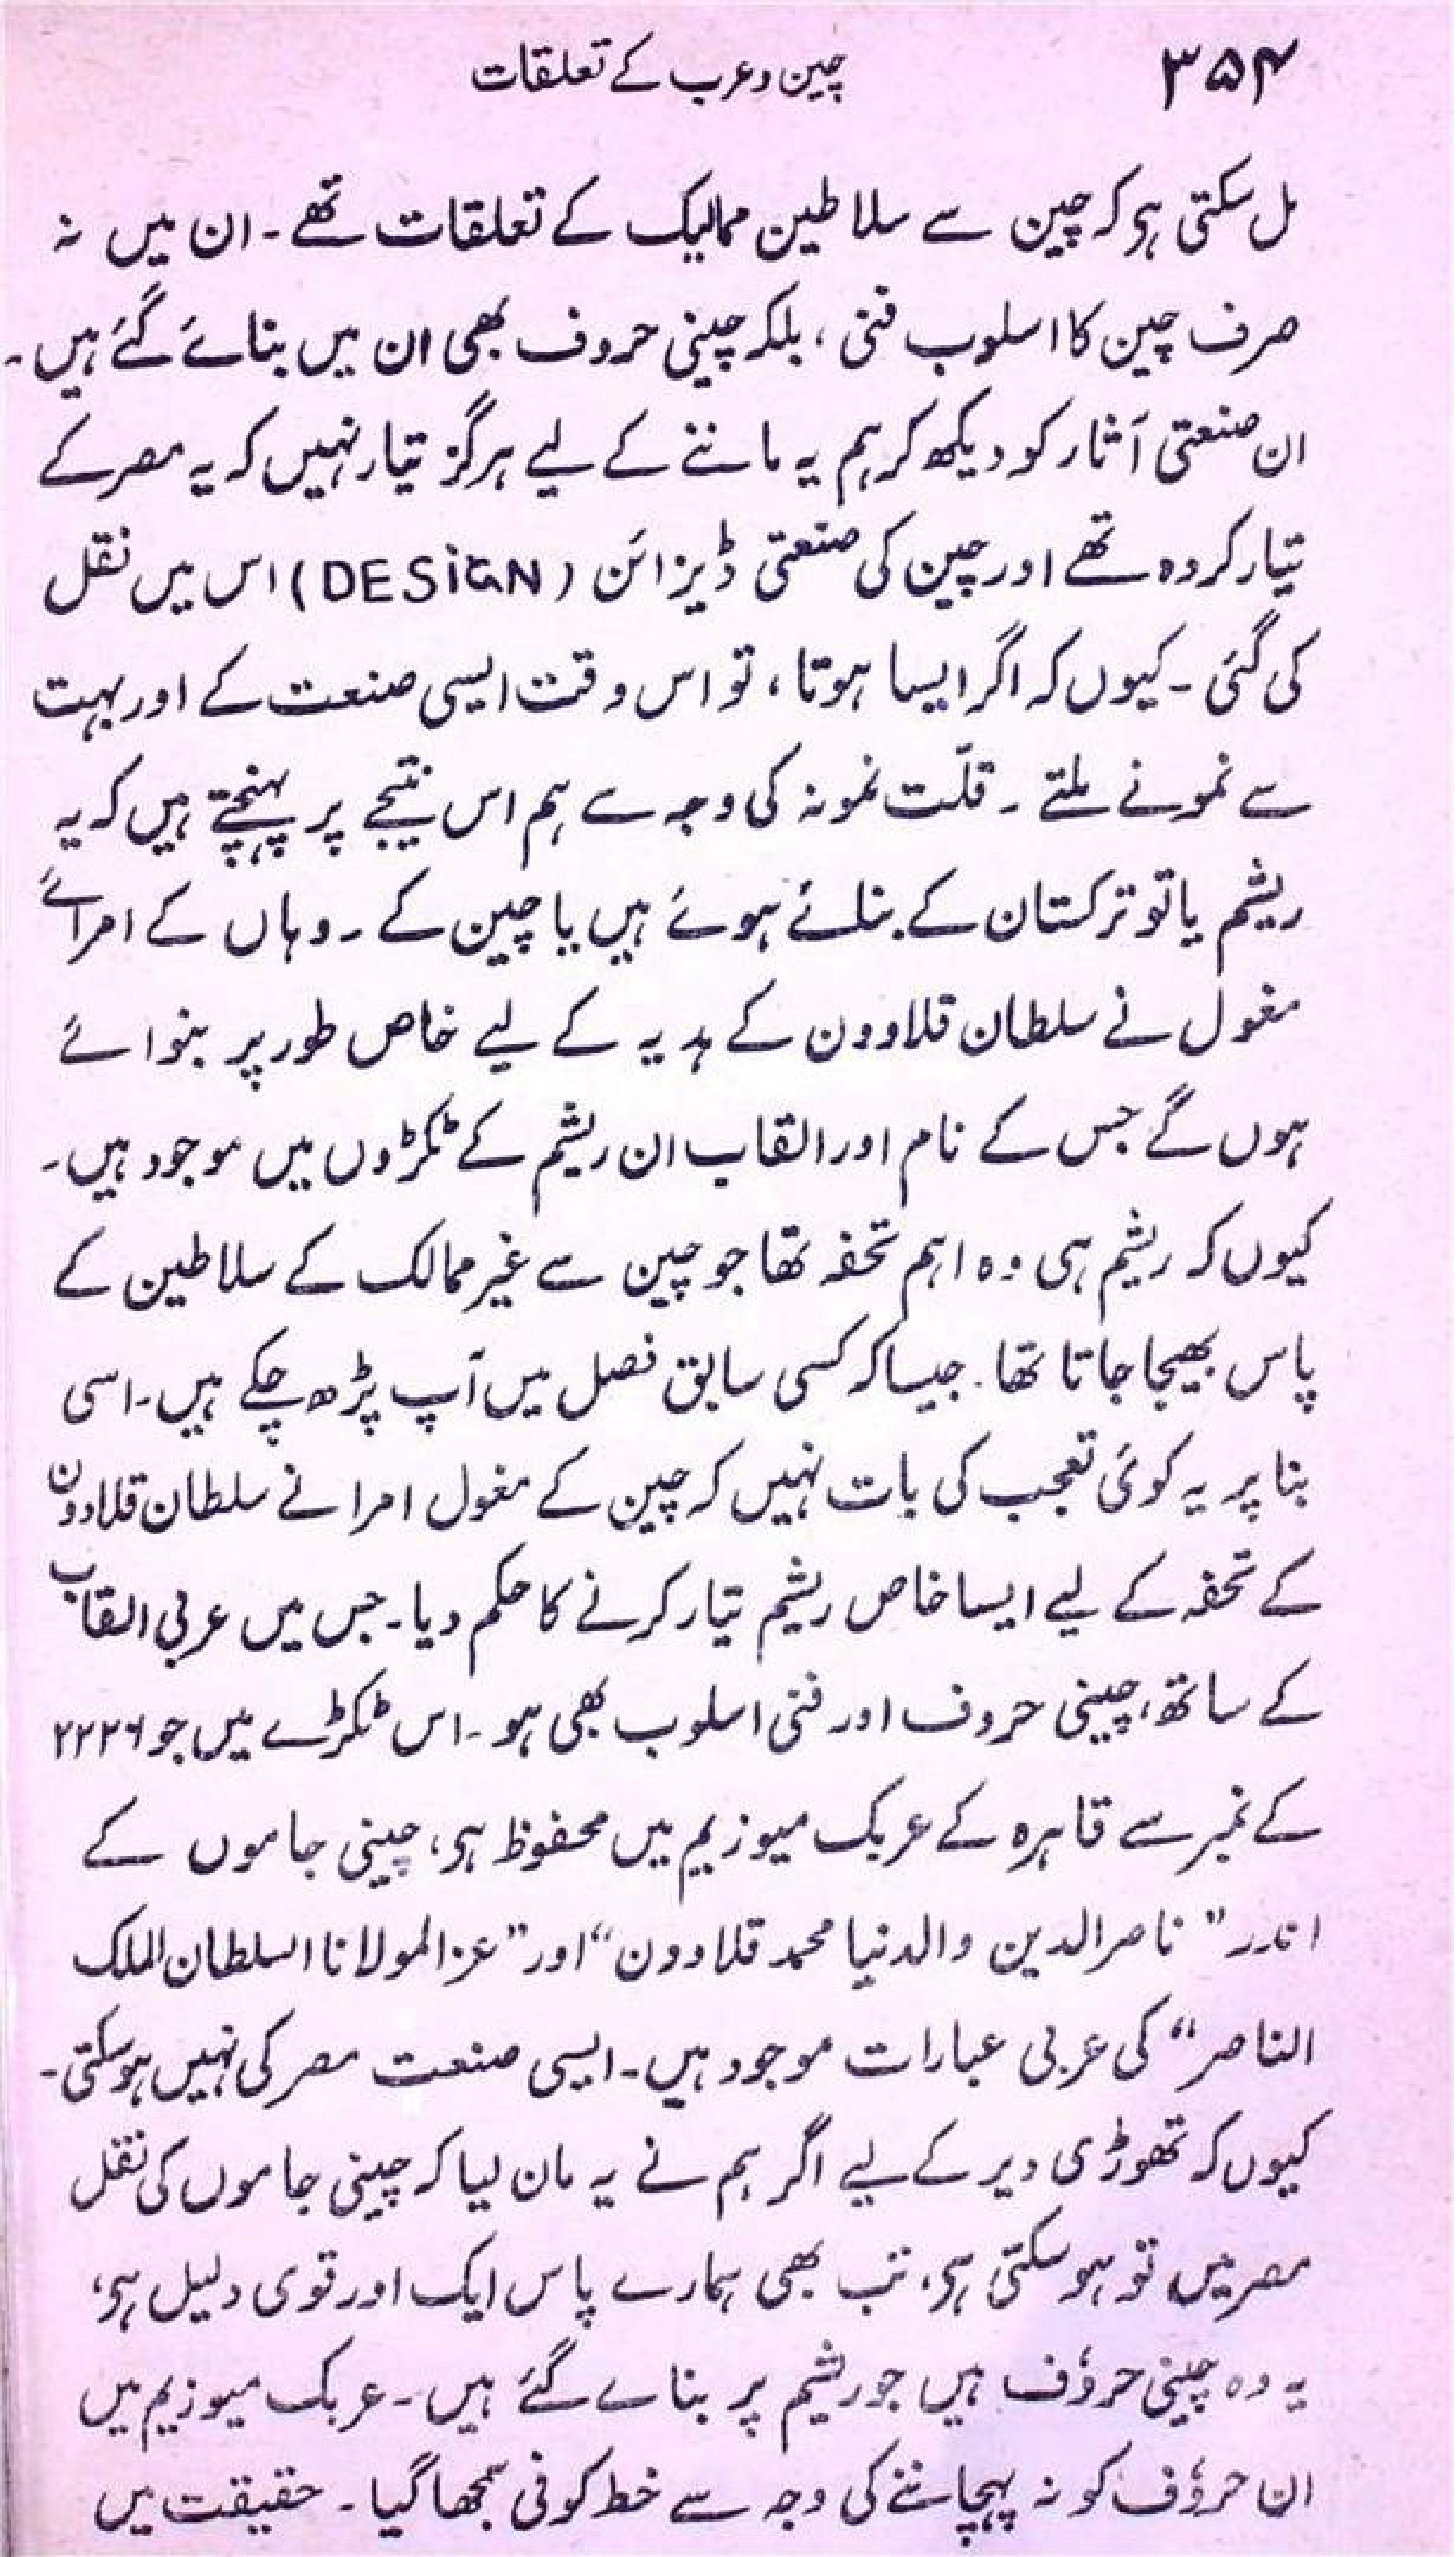 ۳۵۴
چین و عرب کے تعلقات
مل سکتی ہو کہ چین سے سلاطین ممالیک کے تعلقات تھے۔ ان میں نہ
صرف چین کا اسلوب فنی، بلکہ چینی حروف بھی ان میں بنائے گئے ہیں۔
ان صنعتی آثار کو دیکھ کر ہم یہ ماننے کے لیے ہرگز تیار نہیں کہ یہ مصر کے
تیار کردہ تھے اور چین کی صنعتی ڈیزائن (DESiGN) اس میں نقل
کی گئی۔ کیوں کہ اگر ایسا ہوتا، تو اس وقت ایسی صنعت کے اور بہت
سے نمونے ملتے۔ قلّت نمونہ کی وجہ سے ہم اس نتیجے پر پہنچتے ہیں کہ یہ
ریشم یا تو ترکستان کے بنائے ہوئے ہیں یا چین کے۔ وہاں کے امرائے
مغول نے سلطان قلاوون کے ہدیہ کے لیے خاص طور پر بنوائے
ہوں گے جس کے نام اور القاب ان ریشم کے ٹکڑوں میں موجود ہیں۔
کیوں کہ ریشم ہی وہ اہم تحفہ تھا جو چین سے غیر ممالک کے سلاطین کے
پاس بھیجا جاتا تھا۔ جیسا کہ کسی سابق فصل میں آپ پڑھ چکے ہیں۔ اسی
بنا پر یہ کوئی تعجب کی بات نہیں کہ چین کے مغول امرا نے سلطان قلاوون
کے تحفہ کے لیے ایسا خاص ریشم تیار کرنے کا حکم دیا۔ جس میں عربی القاب
کے ساتھ، چینی حروف اور فنی اسلوب بھی ہو۔ اس ٹکڑے میں جو ۲۲۲۶
کے نمبر سے قاہرہ کے عربک میوزیم میں محفوظ ہو، چینی جاموں کے
اندر ”ناصر الدین والدنیا محمد قلاوون“ اور ”عز المولانا السلطان الملک
الناصر“ کی عربی عبارات موجود ہیں۔ ایسی صنعت مصر کی نہیں ہوسکتی۔
کیوں کہ تھوڑی دیر کے لیے اگر ہم نے یہ مان لیا کہ چینی جاموں کی نقل
مصر میں تو ہو سکتی ہو، تب بھی ہمارے پاس ایک اور قوی دلیل ہو،
یہ وہ چینی حروٗف ہیں جو ریشم پر بنائے گئے ہیں۔ عربک میوزیم میں
ان حروٗف کو نہ پہچاننے کی وجہ سے خط کوفی سمجھا گیا۔ حقیقت میں